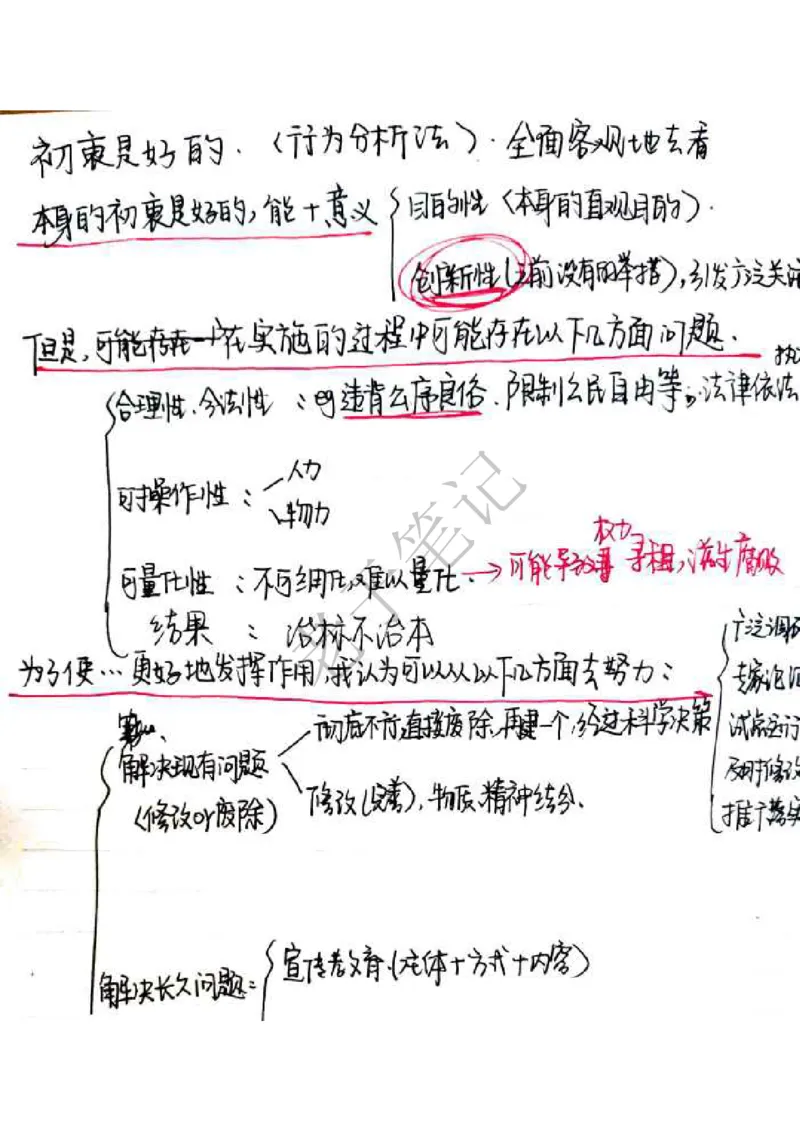 初衷是好的.（行为分析法）.全面客观地去看
本身的初衷是好的,能+意义
目的性（本身的直观目的）.
创新性（之前没有的举措）,引发广泛关
但是,可能存在一个在实施的过程中可能存在以下几方面问题.
合理性、合法性：可违背公序良俗、限制公民自由等。法律依法
可操作性：人力
物力
权力
可量化性：不可细化,难以量化.→可能导致 寻租,滋生腐败
结果：治标不治本
广泛调研
为了使…更好地发挥作用,我认为可以从以下几方面去努力：
专家论证
彻底不行,直接废除,再建一个,经过科学决策
试点运行
解决现有问题
及时修改
（修改or废除）
修改（完善）,物质、精神结合.
推广落实
解决长久问题：
宣传教育.（主体+方式+内容）
老于笔记